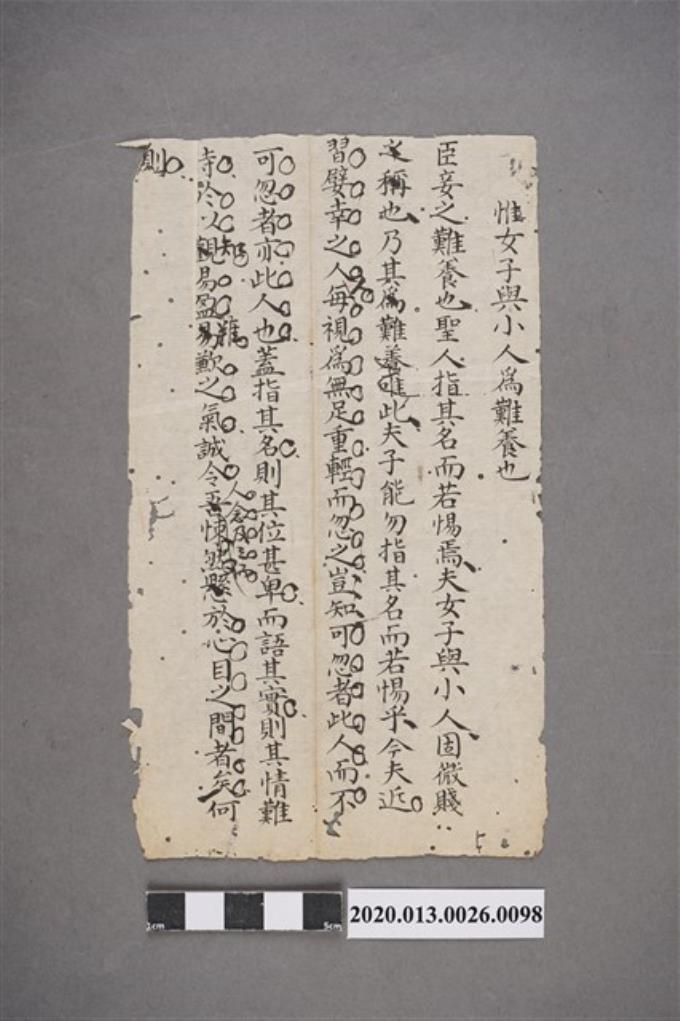 惟女子與小人為難養也
臣妾之難養也聖人指其名而若惕焉夫女子與小人固微賤
之稱也乃其為難養惟此夫子能勿指其名而若惕乎今夫近
習嬖幸之人每視為無足重輕而忽之豈知可忽者此人而不
可忽者亦此人也蓋指其名則其位甚卑而語其實則其情難
知
難
人念及之而
令吾悚然懸於心目之間者矣何
則
1cm
5cm
2020.013.0026.0098